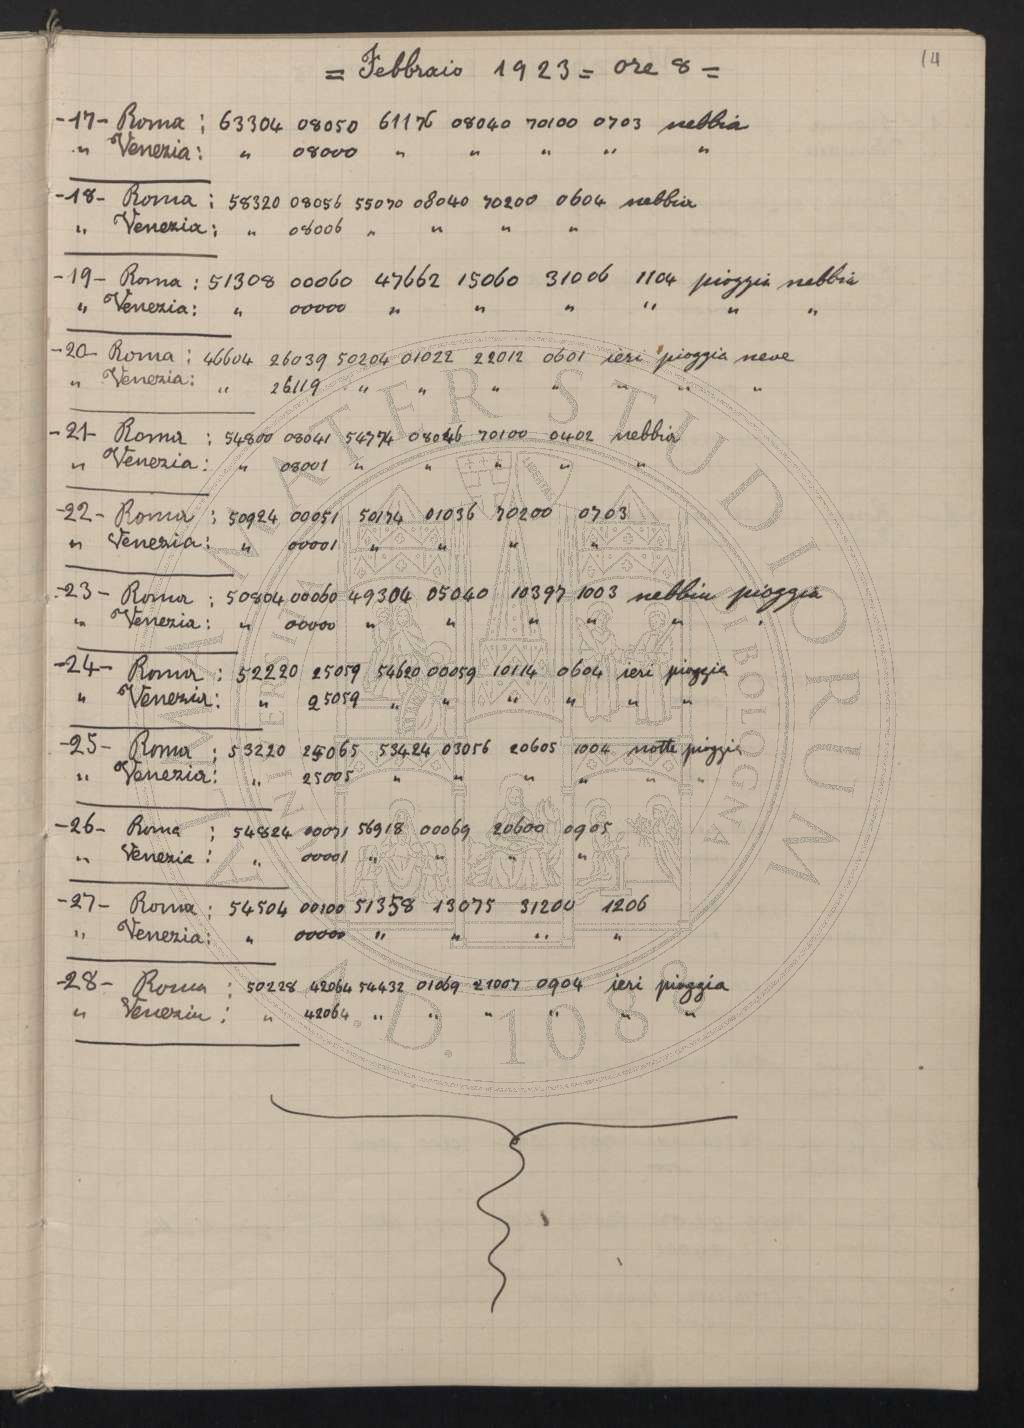 14
= Febbraio 1923 = ore 8 =
-17- Roma : 63304 08050 61176 08040 70100 0703 nebbia
" Venezia : " 08000 " " " " "
-18- Roma : 58320 08056 55070 08040 70200 0604 nebbia
" Venezia : " 08006 " " " "
-19- Roma : 51308 00060 47662 15060 31006 1104 pioggia nebbia
" Venezia : " 00000 " " " " " "
-20- Roma : 46604 26039 50204 01022 22012 0601 ieri pioggia neve
" Venezia : " 26119 " " " " " " "
-21- Roma : 54800 08041 54774 08046 70100 0402 nebbia
" Venezia : " 08001 " " " " "
-22- Roma : 50924 00051 50174 01036 70200 0703
" Venezia : " 00001 " " " "
-23- Roma : 50804 00060 49304 05040 10397 1003 nebbia pioggia
" Venezia : " 00000 " " " " " "
-24- Roma : 52220 25059 54620 00059 10114 0604 ieri pioggia
" Venezia : " 25059 " " " " " "
-25- Roma : 53220 25065 53424 03056 20605 1004 notte pioggia
" Venezia : " 25005 " " " " " "
-26- Roma : 54824 00071 56918 00069 20600 0905
" Venezia : " 00001 " " " "
-27- Roma : 54504 00100 51358 13075 31200 1206
" Venezia : " 00000 " " " "
-28- Roma : 50228 42064 54432 01069 21007 0904 ieri pioggia
" Venezia : " 42064 " " " " " "
ALMA MATER STUDIORUM
A.D. 1088